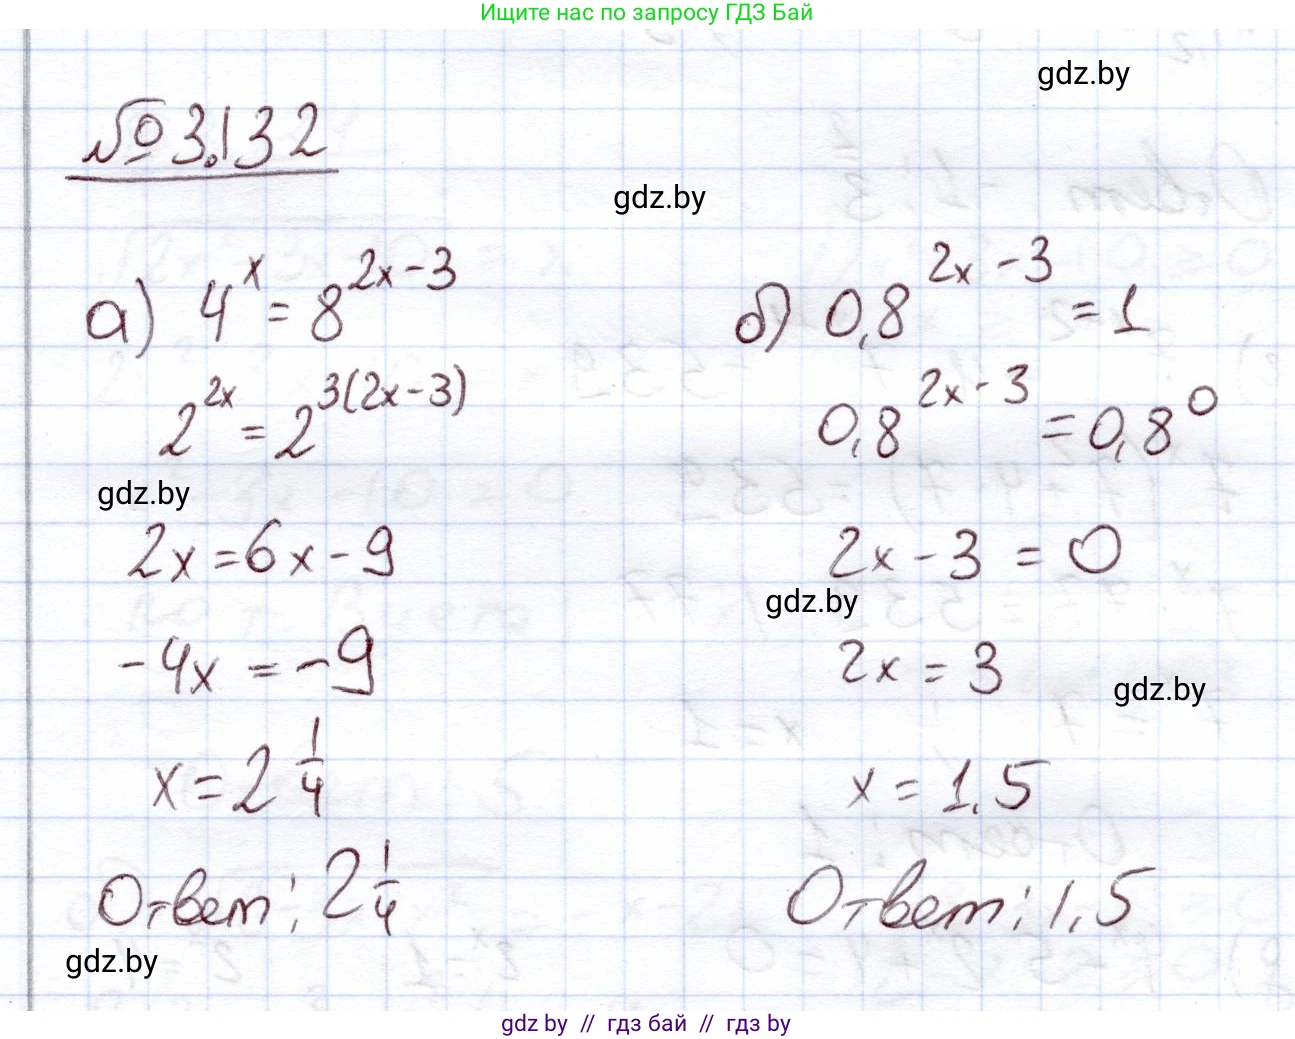 Ищите нас по запросу ГДЗ Бай
gdz.by
№ 3.132
gdz.by
а) 4^x = 8^{2x-3}
2^{2x} = 2^{3(2x-3)}
gdz.by
2x = 6x - 9
-4x = -9
x = 2 1/4
Ответ: 2 1/4
gdz.by
б) 0,8^{2x-3} = 1
0,8^{2x-3} = 0,8^0
2x - 3 = 0
gdz.by
2x = 3
gdz.by
x = 1,5
Ответ: 1,5
gdz.by // гдз бай // гдз by